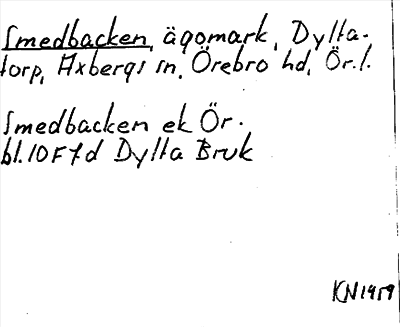 Smedbacken, ägomark, Dylta-
torp, Axbergs sn, Örebro hd, Ör. l.
Smedbacken ek Ör.
bl. 10F7d Dylta Bruk
KN1959